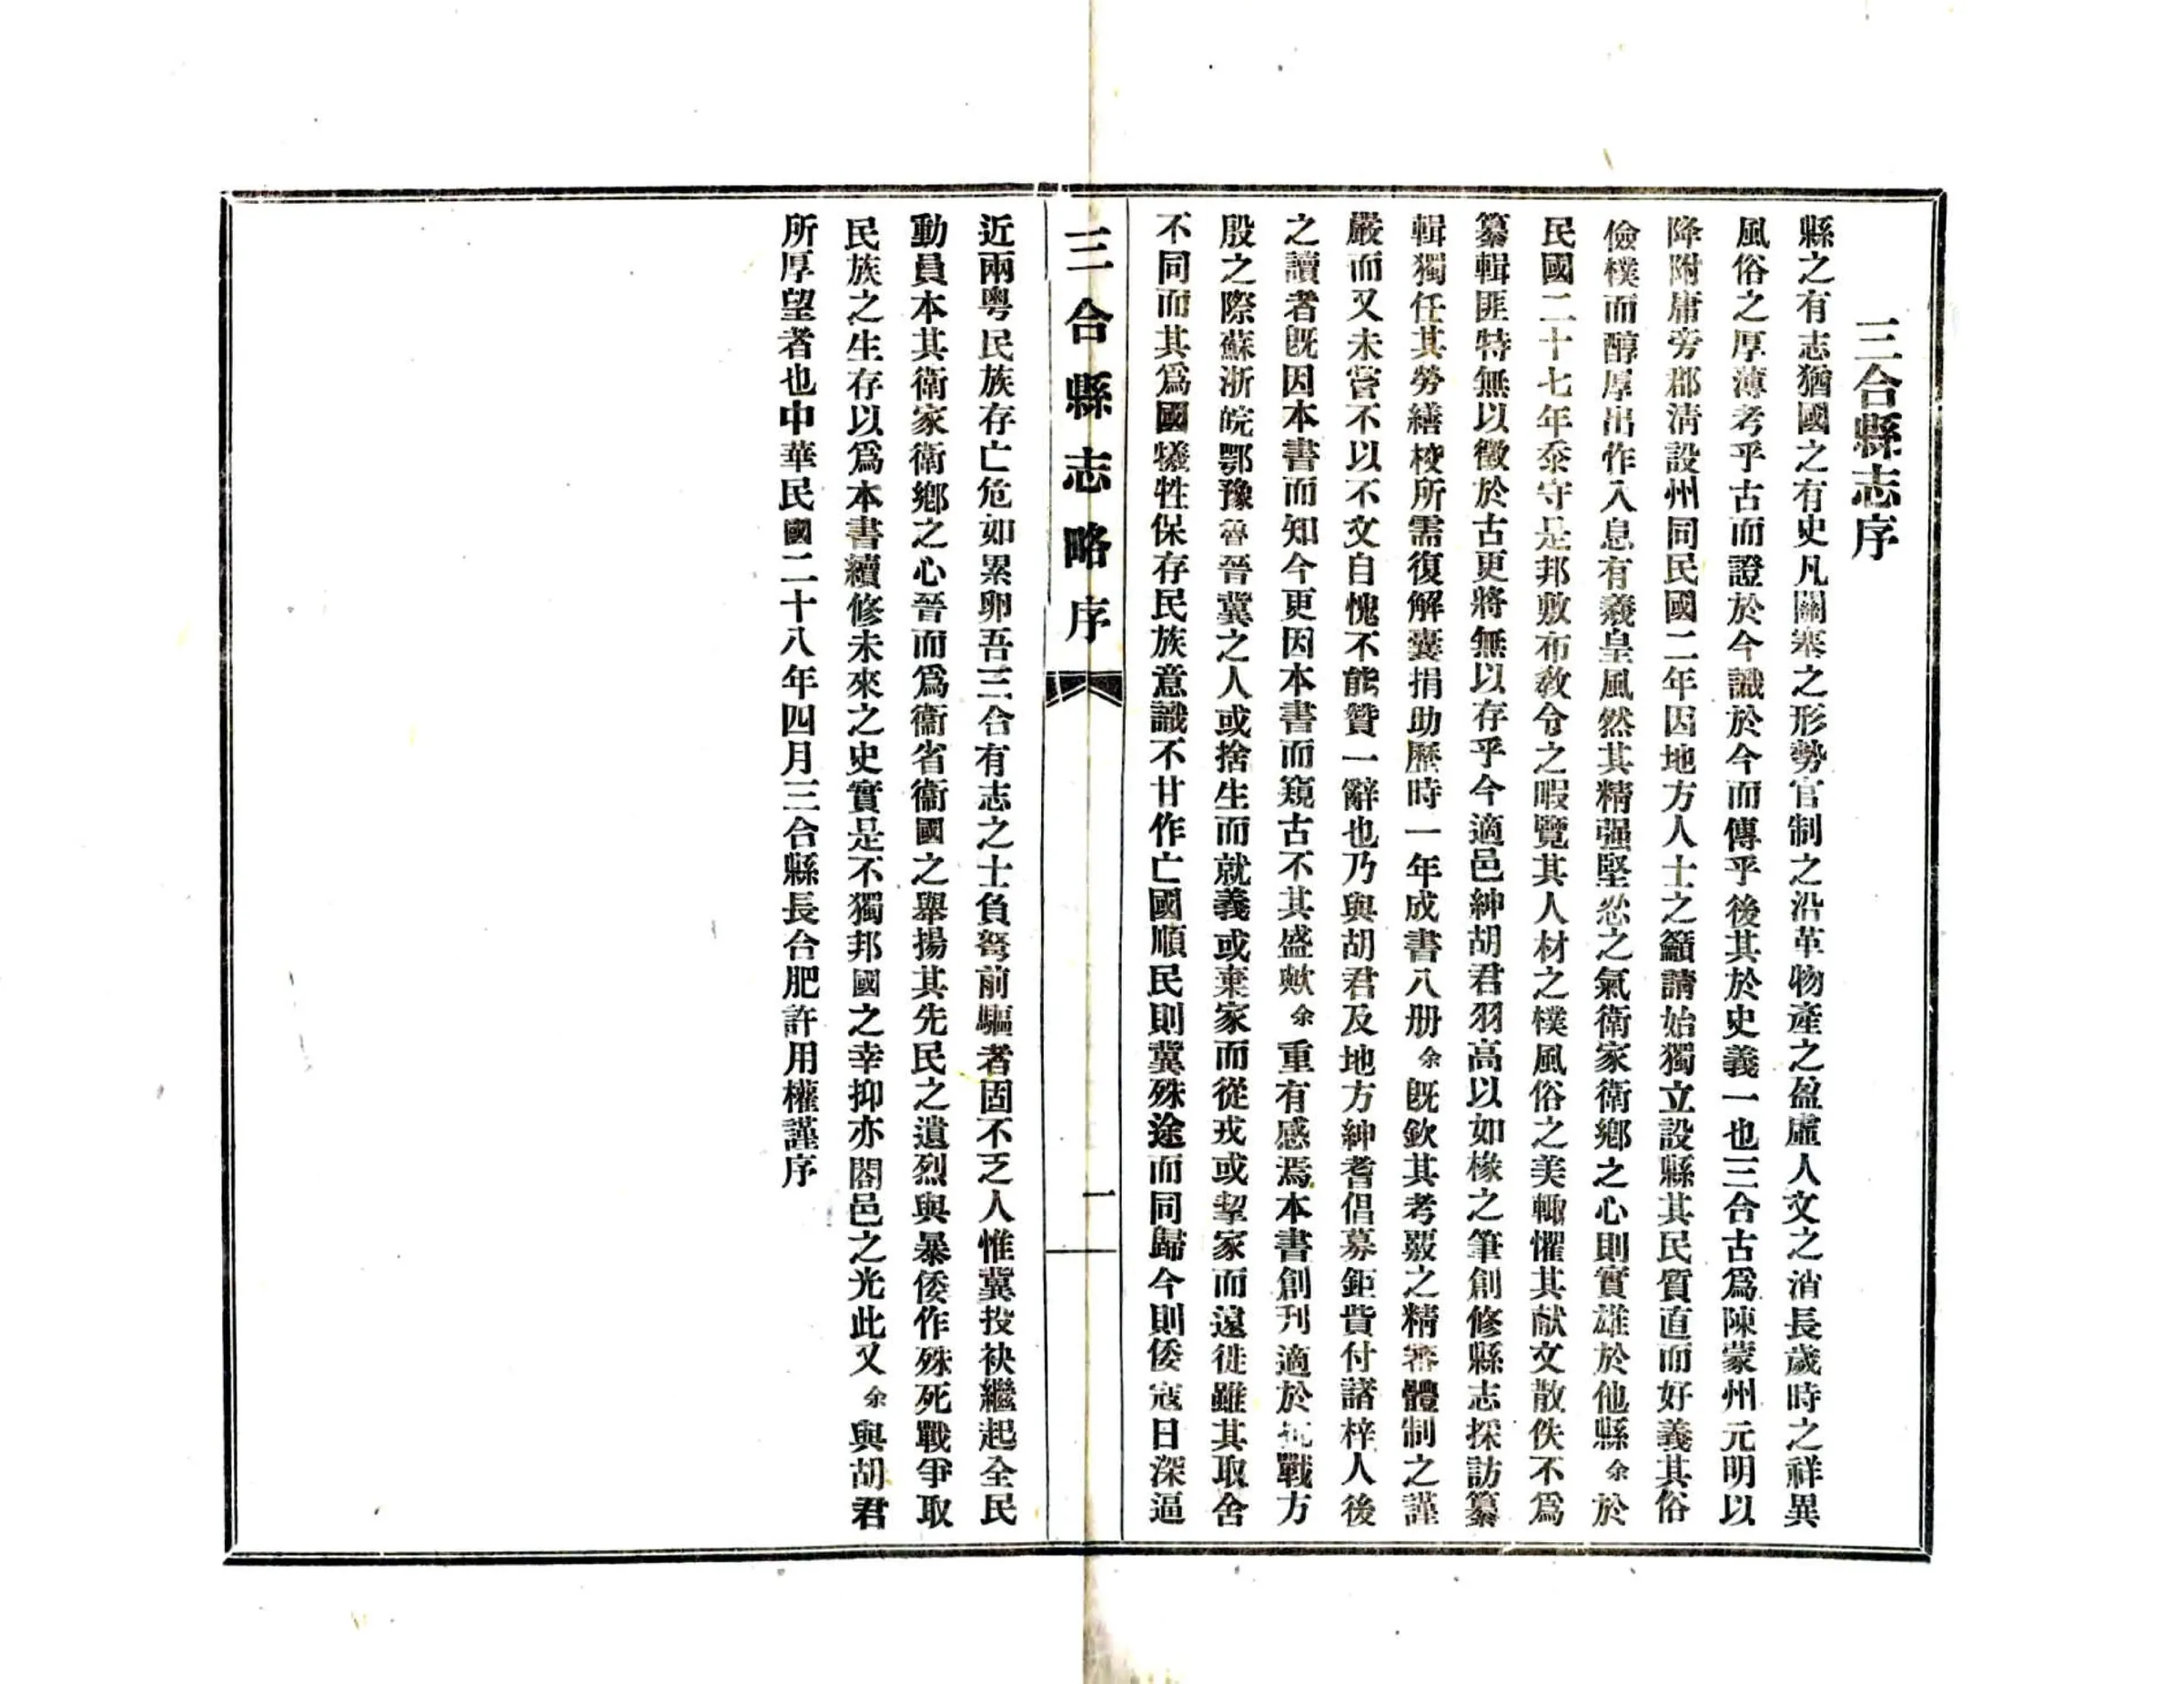 三合縣志序
縣之有志猶國之有史凡關塞之形勢官制之沿革物產之盈虛人文之消長歲時之祥異
風俗之厚薄考乎古而證於今識於今而傳乎後其於史義一也三合古爲陳蒙州元明以
降附庸旁郡淸設州同民國二年因地方人士之籲請始獨立設縣其民質直而好義其俗
儉樸而醇厚出作入息有羲皇風然其精强堅忍之氣衛家衛鄉之心則實雄於他縣余於
民國二十七年忝守是邦敷布敎令之暇覽其人材之樸風俗之美輙懼其献文散佚不爲
纂輯匪特無以徵於古更將無以存乎今適邑紳胡君羽高以如椽之筆創修縣志採訪纂
輯獨任其勞繕校所需復解囊捐助歷時一年成書八册余旣欽其考覈之精審體制之謹
嚴而又未嘗不以不文自愧不能贊一辭也乃與胡君及地方紳耆倡募鉅貲付諸梓人後
之讀者旣因本書而知今更因本書而窺古不其盛歟余重有感焉本書創刋適於抗戰方
殷之際蘇浙皖鄂豫魯晉冀之人或捨生而就義或棄家而從戎或挈家而遠徙雖其取舍
不同而其爲國犧牲保存民族意識不甘作亡國順民則冀殊途而同歸今則倭寇日深逼
三合縣志略序
一
近兩粵民族存亡危如累卵吾三合有志之士負弩前驅者固不乏人惟冀投袂繼起全民
動員本其衛家衛鄉之心晉而爲衞省衞國之舉揚其先民之遺烈與暴倭作殊死戰爭取
民族之生存以爲本書續修未來之史實是不獨邦國之幸抑亦閤邑之光此又余與胡君
所厚望者也中華民國二十八年四月三合縣長合肥許用權謹序